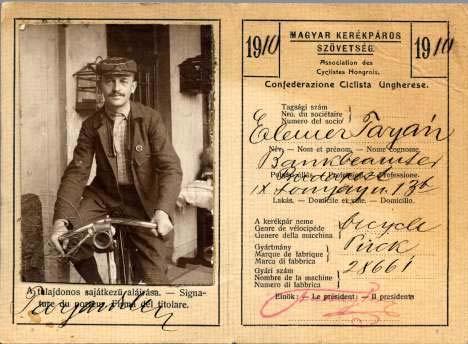 A tulajdonos sajátkezű aláírása. — Signa-
ture du porteur. Firma del titolare.
1910
MAGYAR KERÉKPÁROS
SZÖVETSÉG
1910
Association des
Cyclistes Hongrois.
Confederazione Ciclista Ungherese.
Tagsági szám
Nro. du sociétaire
Numero del socio
Elemér Tarján
Név. — Nom et prénom. — Nome cognome.
Bankbeamter
Profession. — Professione.
Budapest
IX
Lakás. — Domicile et ville. — Domicilio.
A kerékpár neme
Genre de vélocipède
Genere della macchina
bicycle
Gyártmány
Marque de fabrique
Marca di fabbrica
Gyári szám
Nombre de la machine
Numero di fabbrica
28661
Elnök: — Le président: — Il presidente